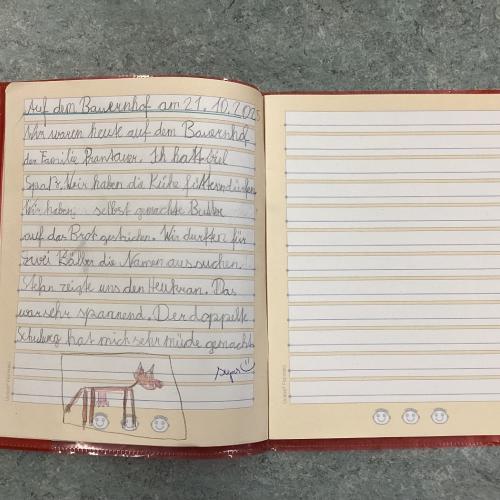 Auf dem Bauernhof am 21.10.2025
Wir waren heute auf dem Bauernhof
der Familie Prantauer. Ich hatt viel
Spaß. Wir haben die Kühe füttern dürfen.
Wir haben selbst gemachte Butter
auf das Brot gestrichen. Wir durften für
zwei Kälber die Namen aussuchen.
Stefan zeigte uns den Heukran. Das
war sehr spannend. Der doppelte
hat mich sehr müde gemacht.
super